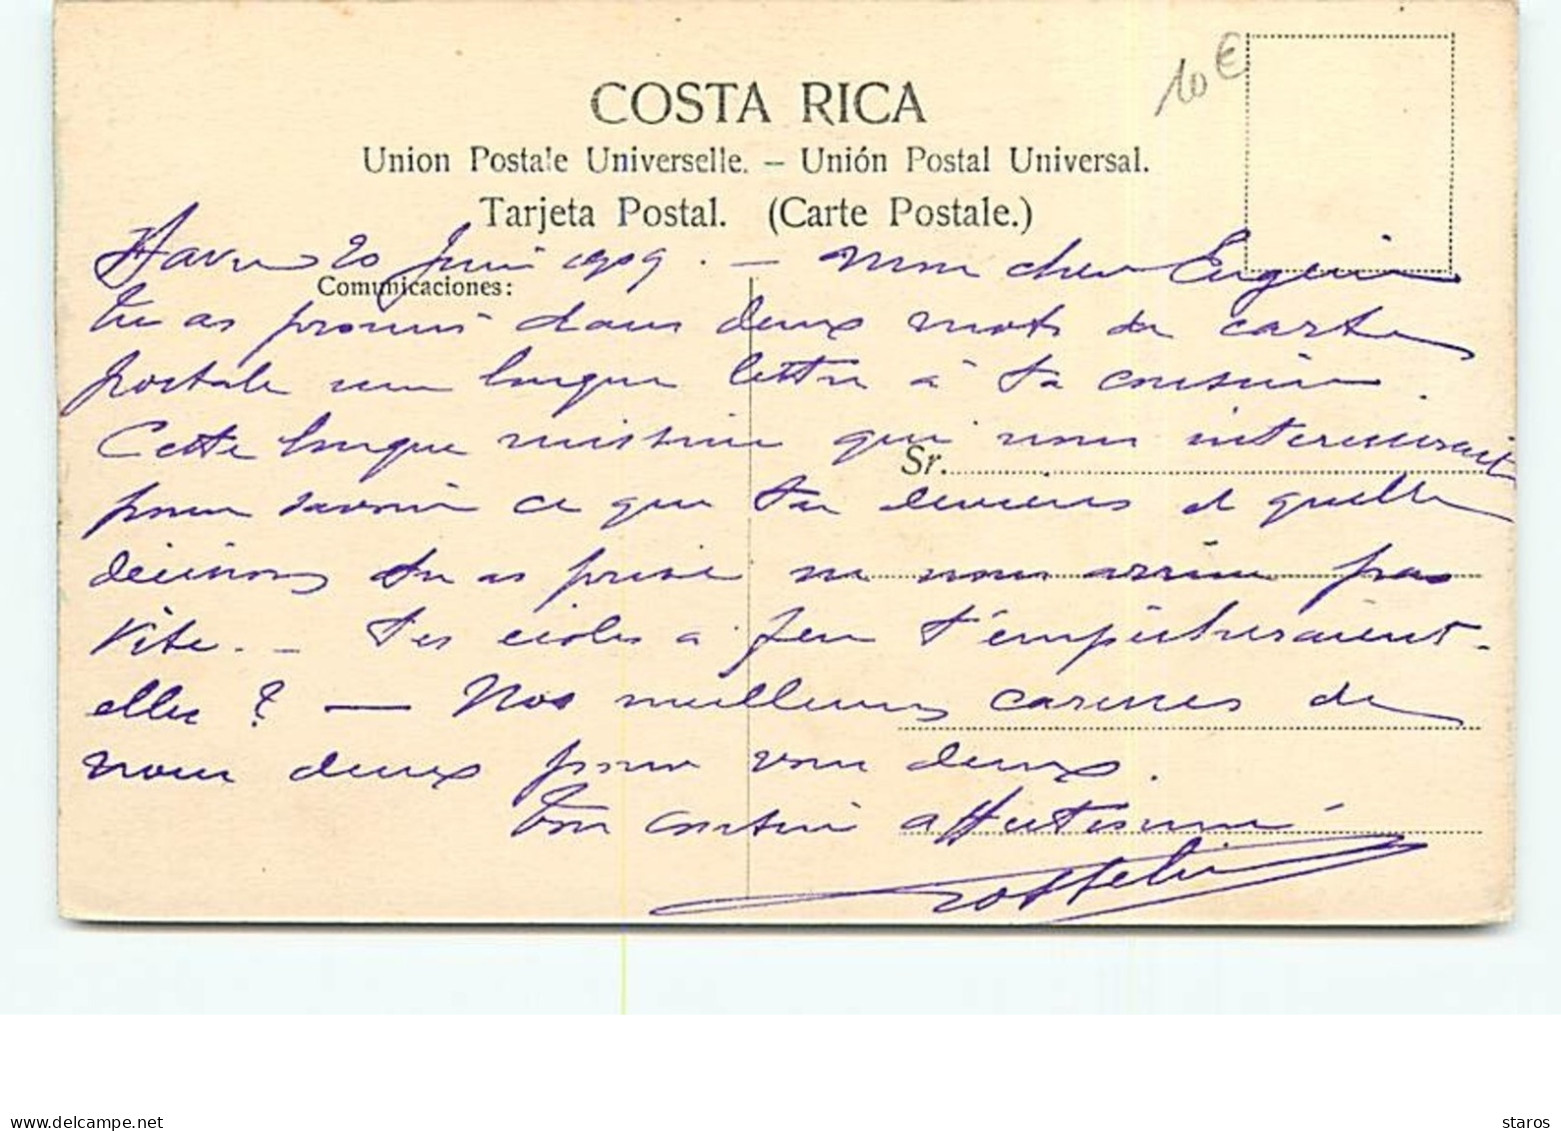 10 €
COSTA RICA
Union Postale Universelle. – Unión Postal Universal.
Tarjeta Postal. (Carte Postale.)
Havre 20 Juin 1909. — Mon cher Eugène
Comunicaciones:
Tu as promis dans deux mots de carte
postale une longue lettre à ta cousine.
Cette longue missive qui nous interesserait
Sr.
pour savoir ce que tu deviens et quelle
décisions tu as prise ne nous arrive pas
vite. — Tes étoles à feu t'empêcheraient-
elles ? — Nos meilleures caresses de
nous deux pour vous deux.
Ton cousin affectionné
www.delcampe.net
staros